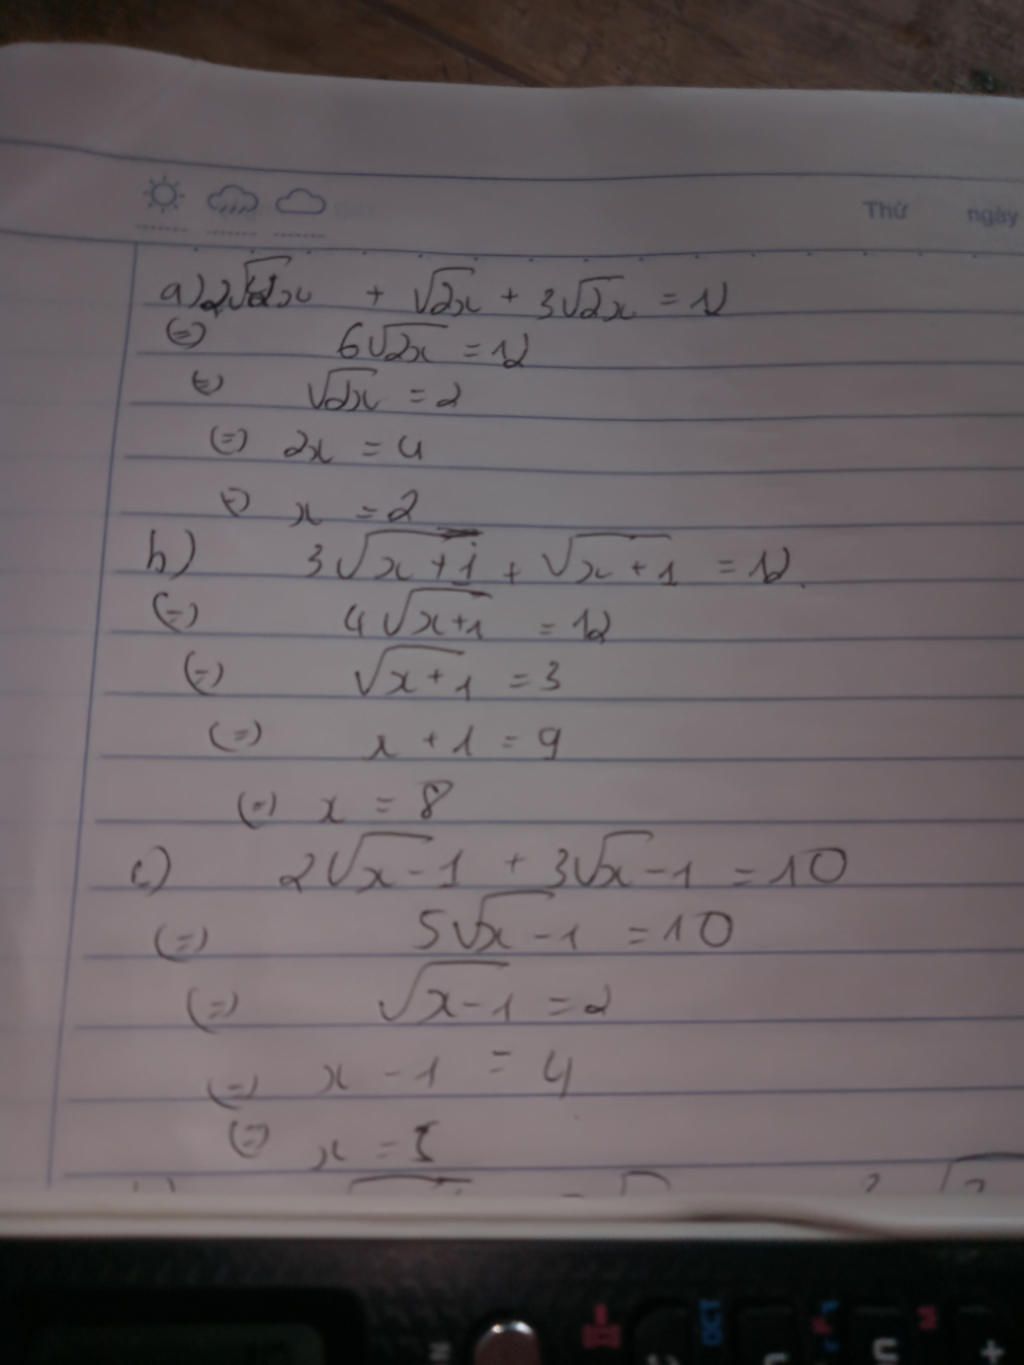 Thứ ngày
a) 2√2x + √2x + 3√2x = 12
(=) 6√2x = 12
(=) √2x = 2
(=) 2x = 4
(=) x = 2
b) 3√x+1 + √x+1 = 12
(=) 4√x+1 = 12
(=) √x+1 = 3
(=) x + 1 = 9
(=) x = 8
c) 2√x-1 + 3√x-1 = 10
(=) 5√x-1 = 10
(=) √x-1 = 2
(=) x - 1 = 4
(=) x = 5
OCT